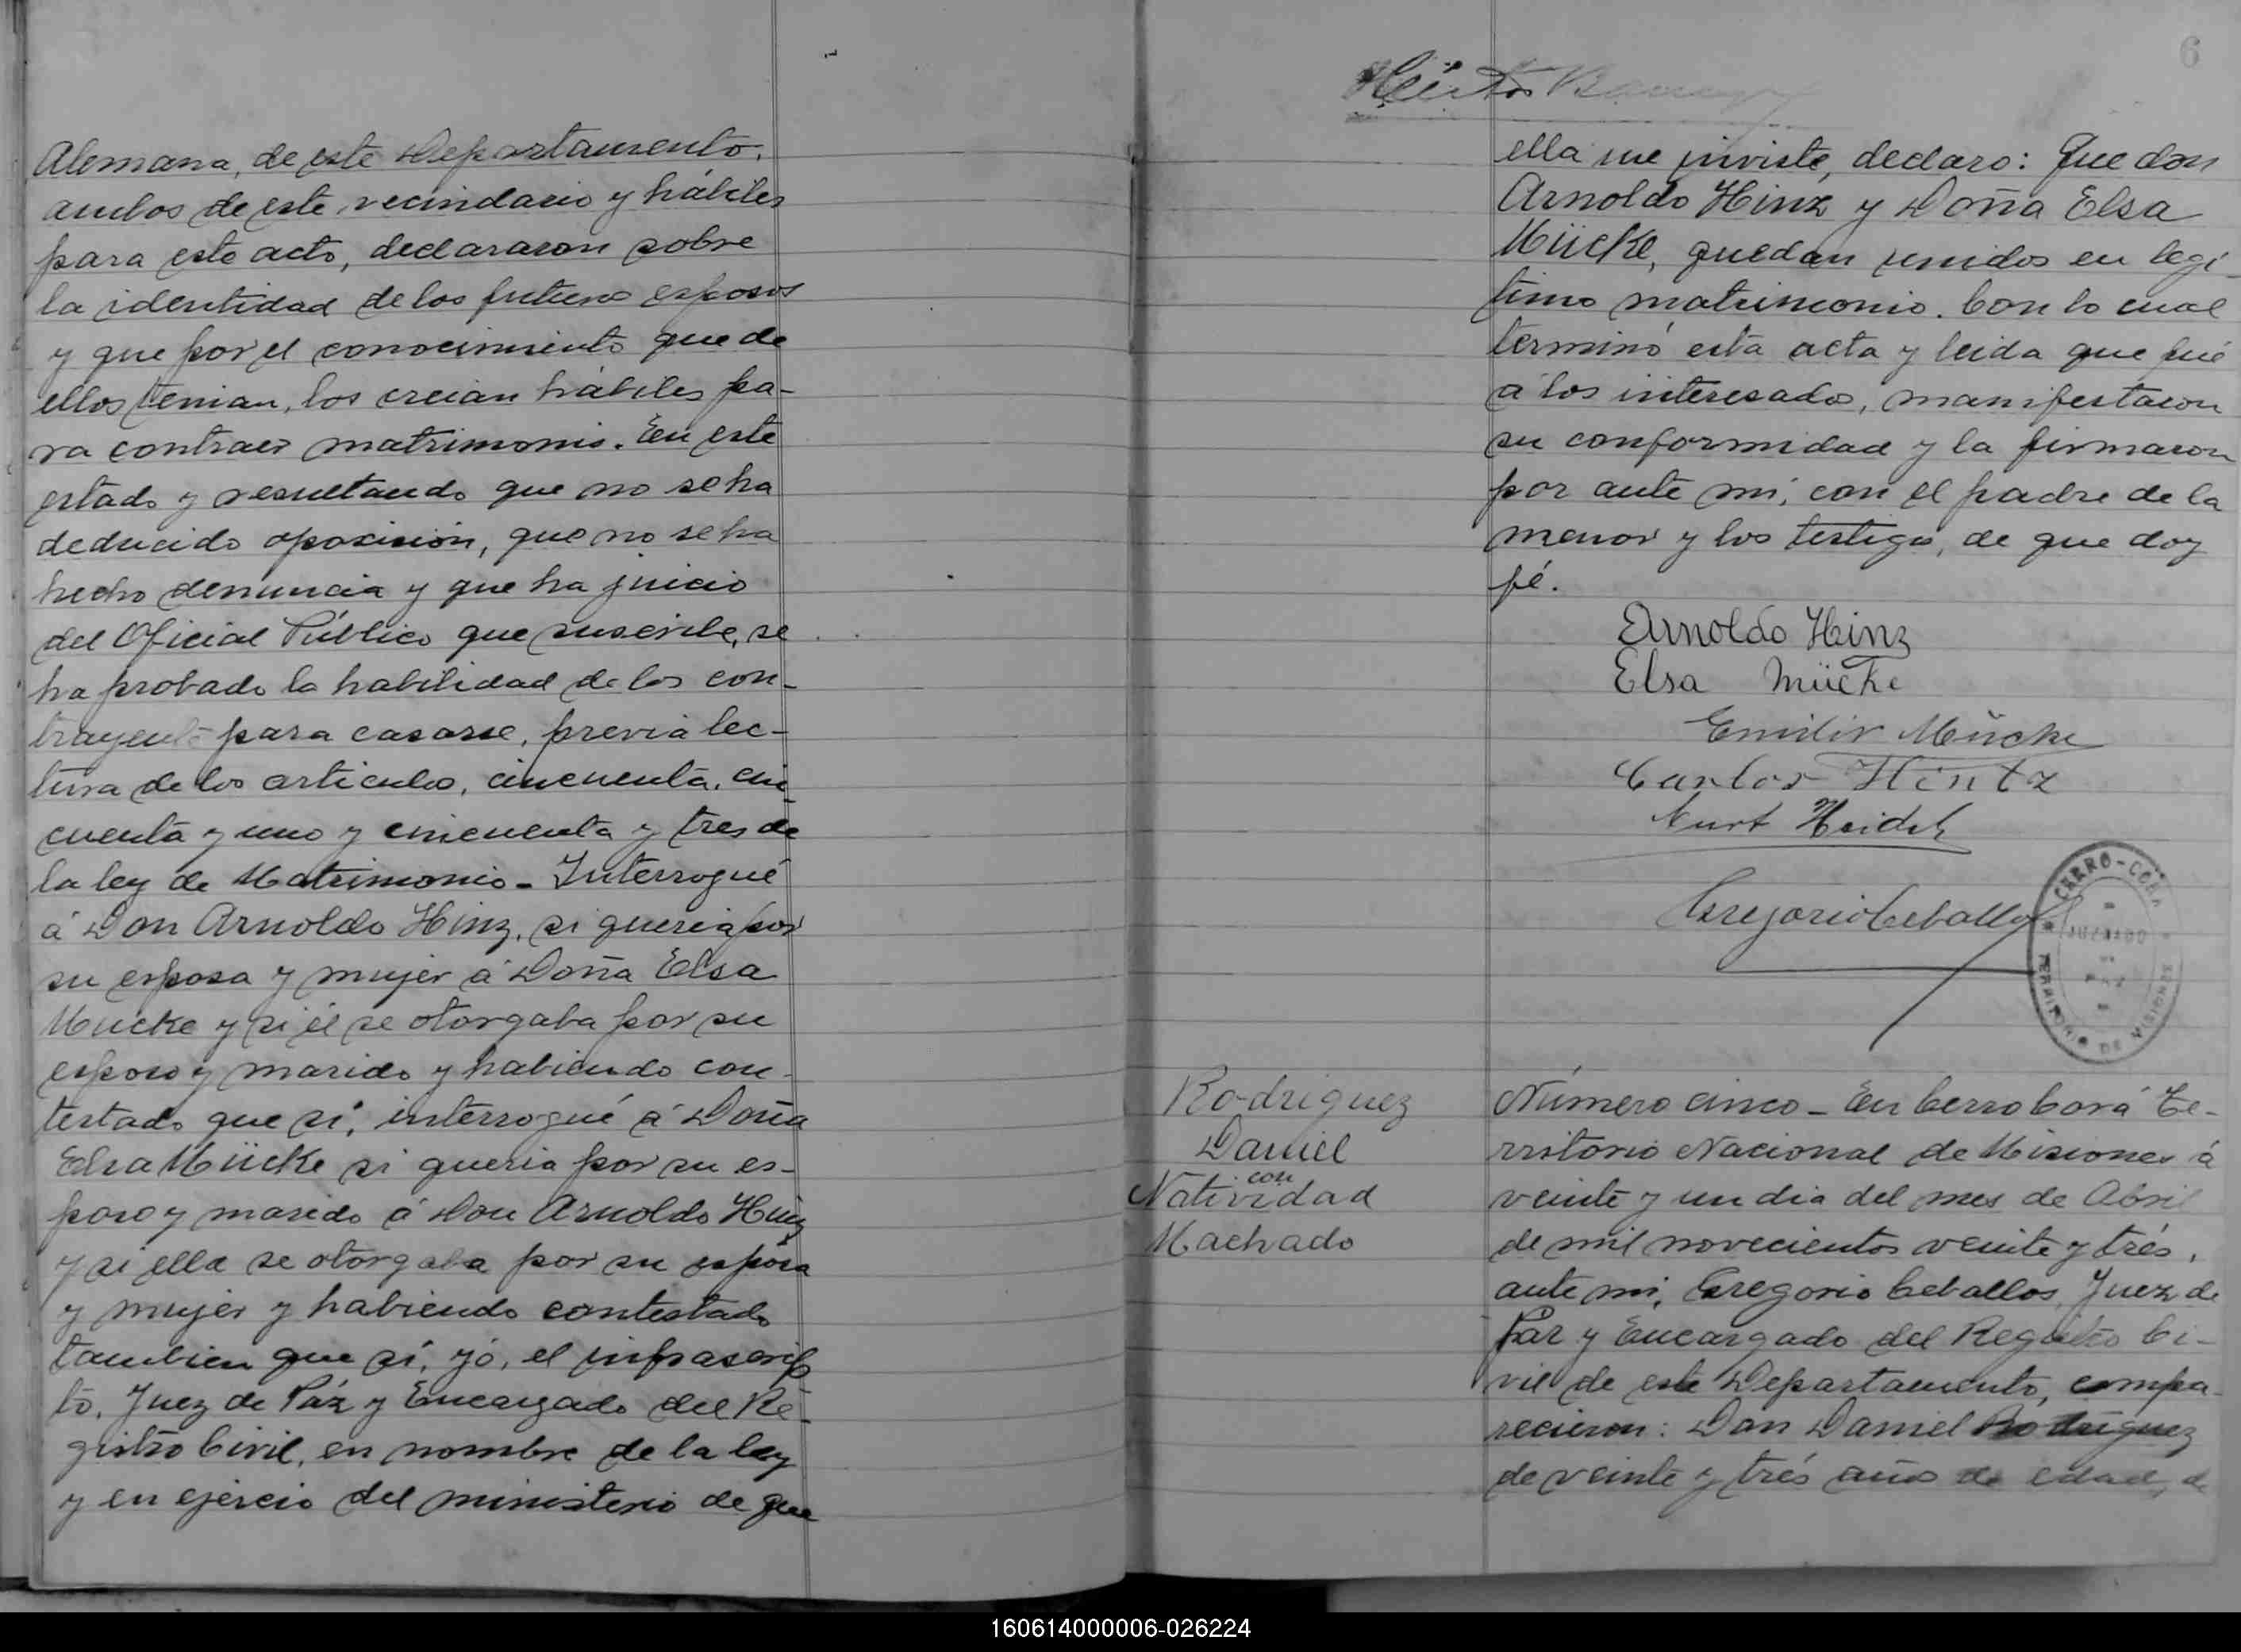 Alemana, de este Departamento.
ambos de este vecindario y hábiles
para este acto, declararon sobre
la identidad de los futuros esposos
y que por el conocimiento que de
ellos tenian, los creian hábiles pa-
ra contraer matrimonio. En este
estado y resultando que no se ha
deducido oposición, que no se ha
hecho denuncia y que ha juicio
del Oficial Público que suscribe, se
ha probado la habilidad de los con-
trayente para casarse, previa lec-
tura de los articulos, cincuenta, cin
cuenta y uno y cincuenta y tres de
la ley de Matrimonio - Interrogué
á Don Arnoldo Hinz, si queria por
su esposa y mujer á Doña Elsa
Mucke y si él se otorgaba por su
esposo y marido y habiendo con-
testado que sí, interrogué á Doña
Elsa Mücke si queria por su es-
poso y marido á Don Arnoldo Hinz
y si ella se otorgaba por su esposa
y mujer y habiendo contestado
tambien que sí, yó, el infrascrip
to, Juez de Páz y Encargado del Re-
gistro Civil, en nombre de la ley
y en ejercio del ministerio de que
6
ella me inviste, declaro: Que don
Arnoldo Hinz y Doña Elsa
Mücke, quedan unidos en legi-
timo matrimonio. Con lo cual
terminó esta acta y leida que fué
á los interesados, manifestaron
su conformidad y la firmaron
por ante mi, con el padre de la
menor y los testigos, de que doy
fé.
Arnoldo Hinz
Elsa Mücke
Emilio Mücke
Carlos Hintz
Kurt
Gregorio Ceballos
CERRO-CORÁ
JUZGADO
DE
PAZ
TERRITORIO DE MISIONES
Rodriguez
Daniel
con
Natividad
Machado
Número cinco - En Cerro Corá Te-
rritorio Nacional de Misiones á
veinte y un dia del mes de Abril
de mil novecientos veinte y trés,
ante mi, Gregorio Ceballos, Juez de
Paz y Encargado del Registro Ci-
vil de este Departamento, compa-
recieron: Don Daniel Rodriguez
de veinte y trés años de edad, de
160614000006-026224